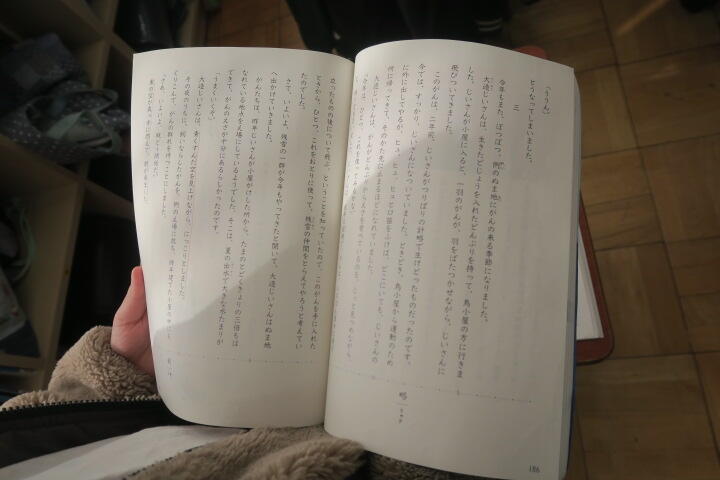 「ううむ」
とうなってしまいました。
三
今年もまた、ぼつぼつ、例のぬま地にがんの来る季節になりました。
大造じいさんは、生きたどじょうを入れたどんぶりを持って、鳥小屋の方に行きま
した。じいさんが小屋に入ると、一羽のがんが、羽をばたつかせながら、じいさんに
飛びついてきました。
このがんは、二年前、じいさんがつりばりの計略で生けどったものだったのです。
今では、すっかり、じいさんになついていました。ときどき、鳥小屋から運動のため
に外に出してやるが、ヒュー、ヒューと口笛をふけば、どこにいても、じいさんの
所に帰ってきて、そのかた先に止まるほどになれていました。
大造じいさんは、がんがどんぶりからえさを食べているのを、じっと見つめながら、
「今年は、ひとつ、これを使ってみるかな。」
略
リャク
186
立ったものの後について飛ぶ、ということを知っていたので、このがんを手に入れた
ときから、ひとつ、これをおとりに使って、残雪の仲間をとらえてやろうと考えてい
たのでした。
さて、いよいよ、残雪の一群が今年もやってきたと聞いて、大造じいさんはぬま地
へ出かけていきました。
がんたちは、昨年じいさんが小屋がけした所から、たまのとどくきょりの三倍も
はなれている地点をえ場にしているようでした。そこは、夏の出水で大きな水たまりが
できて、がんのえさが十分にあるらしかったのです。
「うまくいくぞ。」
大造じいさんは、青くすんだ空を見上げながら、にっこりとしました。
その夜のうちに、飼いならしたがんを、例のえ場に放ち、昨年建てた小屋の中にも
ぐりこんで、がんの群れを待つことにしました。
「さあ、いよいよ、戦とう開始だ。」
東の空が真っ赤に燃えて、朝が来ました。